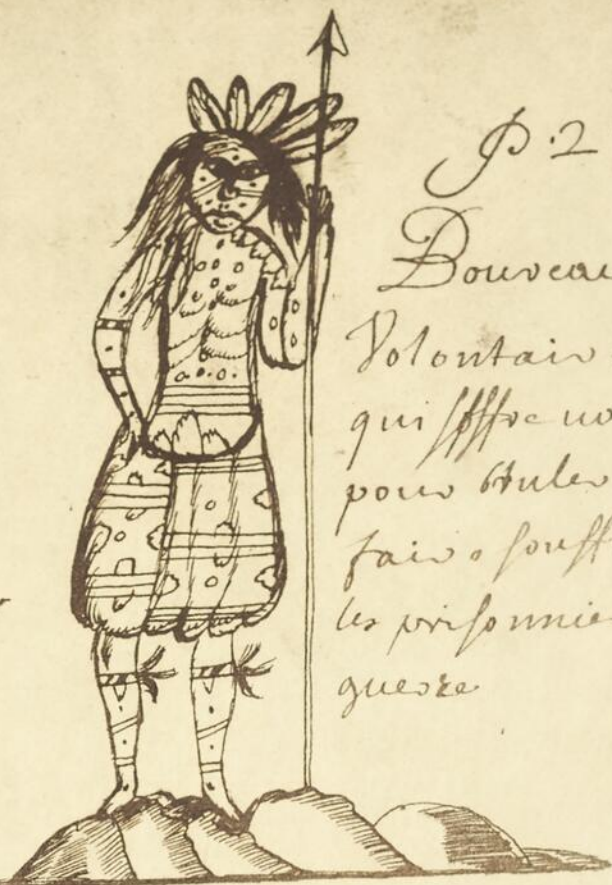 P. 2
Boureau
Volontair
qui s'offre
pour bruler
faire souff
les prisonnie
guerre